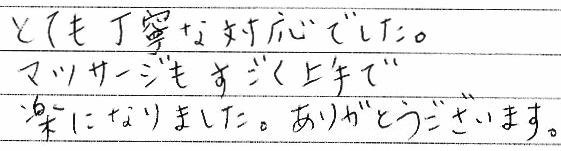 とても丁寧な対応でした。
マッサージもすごく上手で
楽になりました。ありがとうございます。